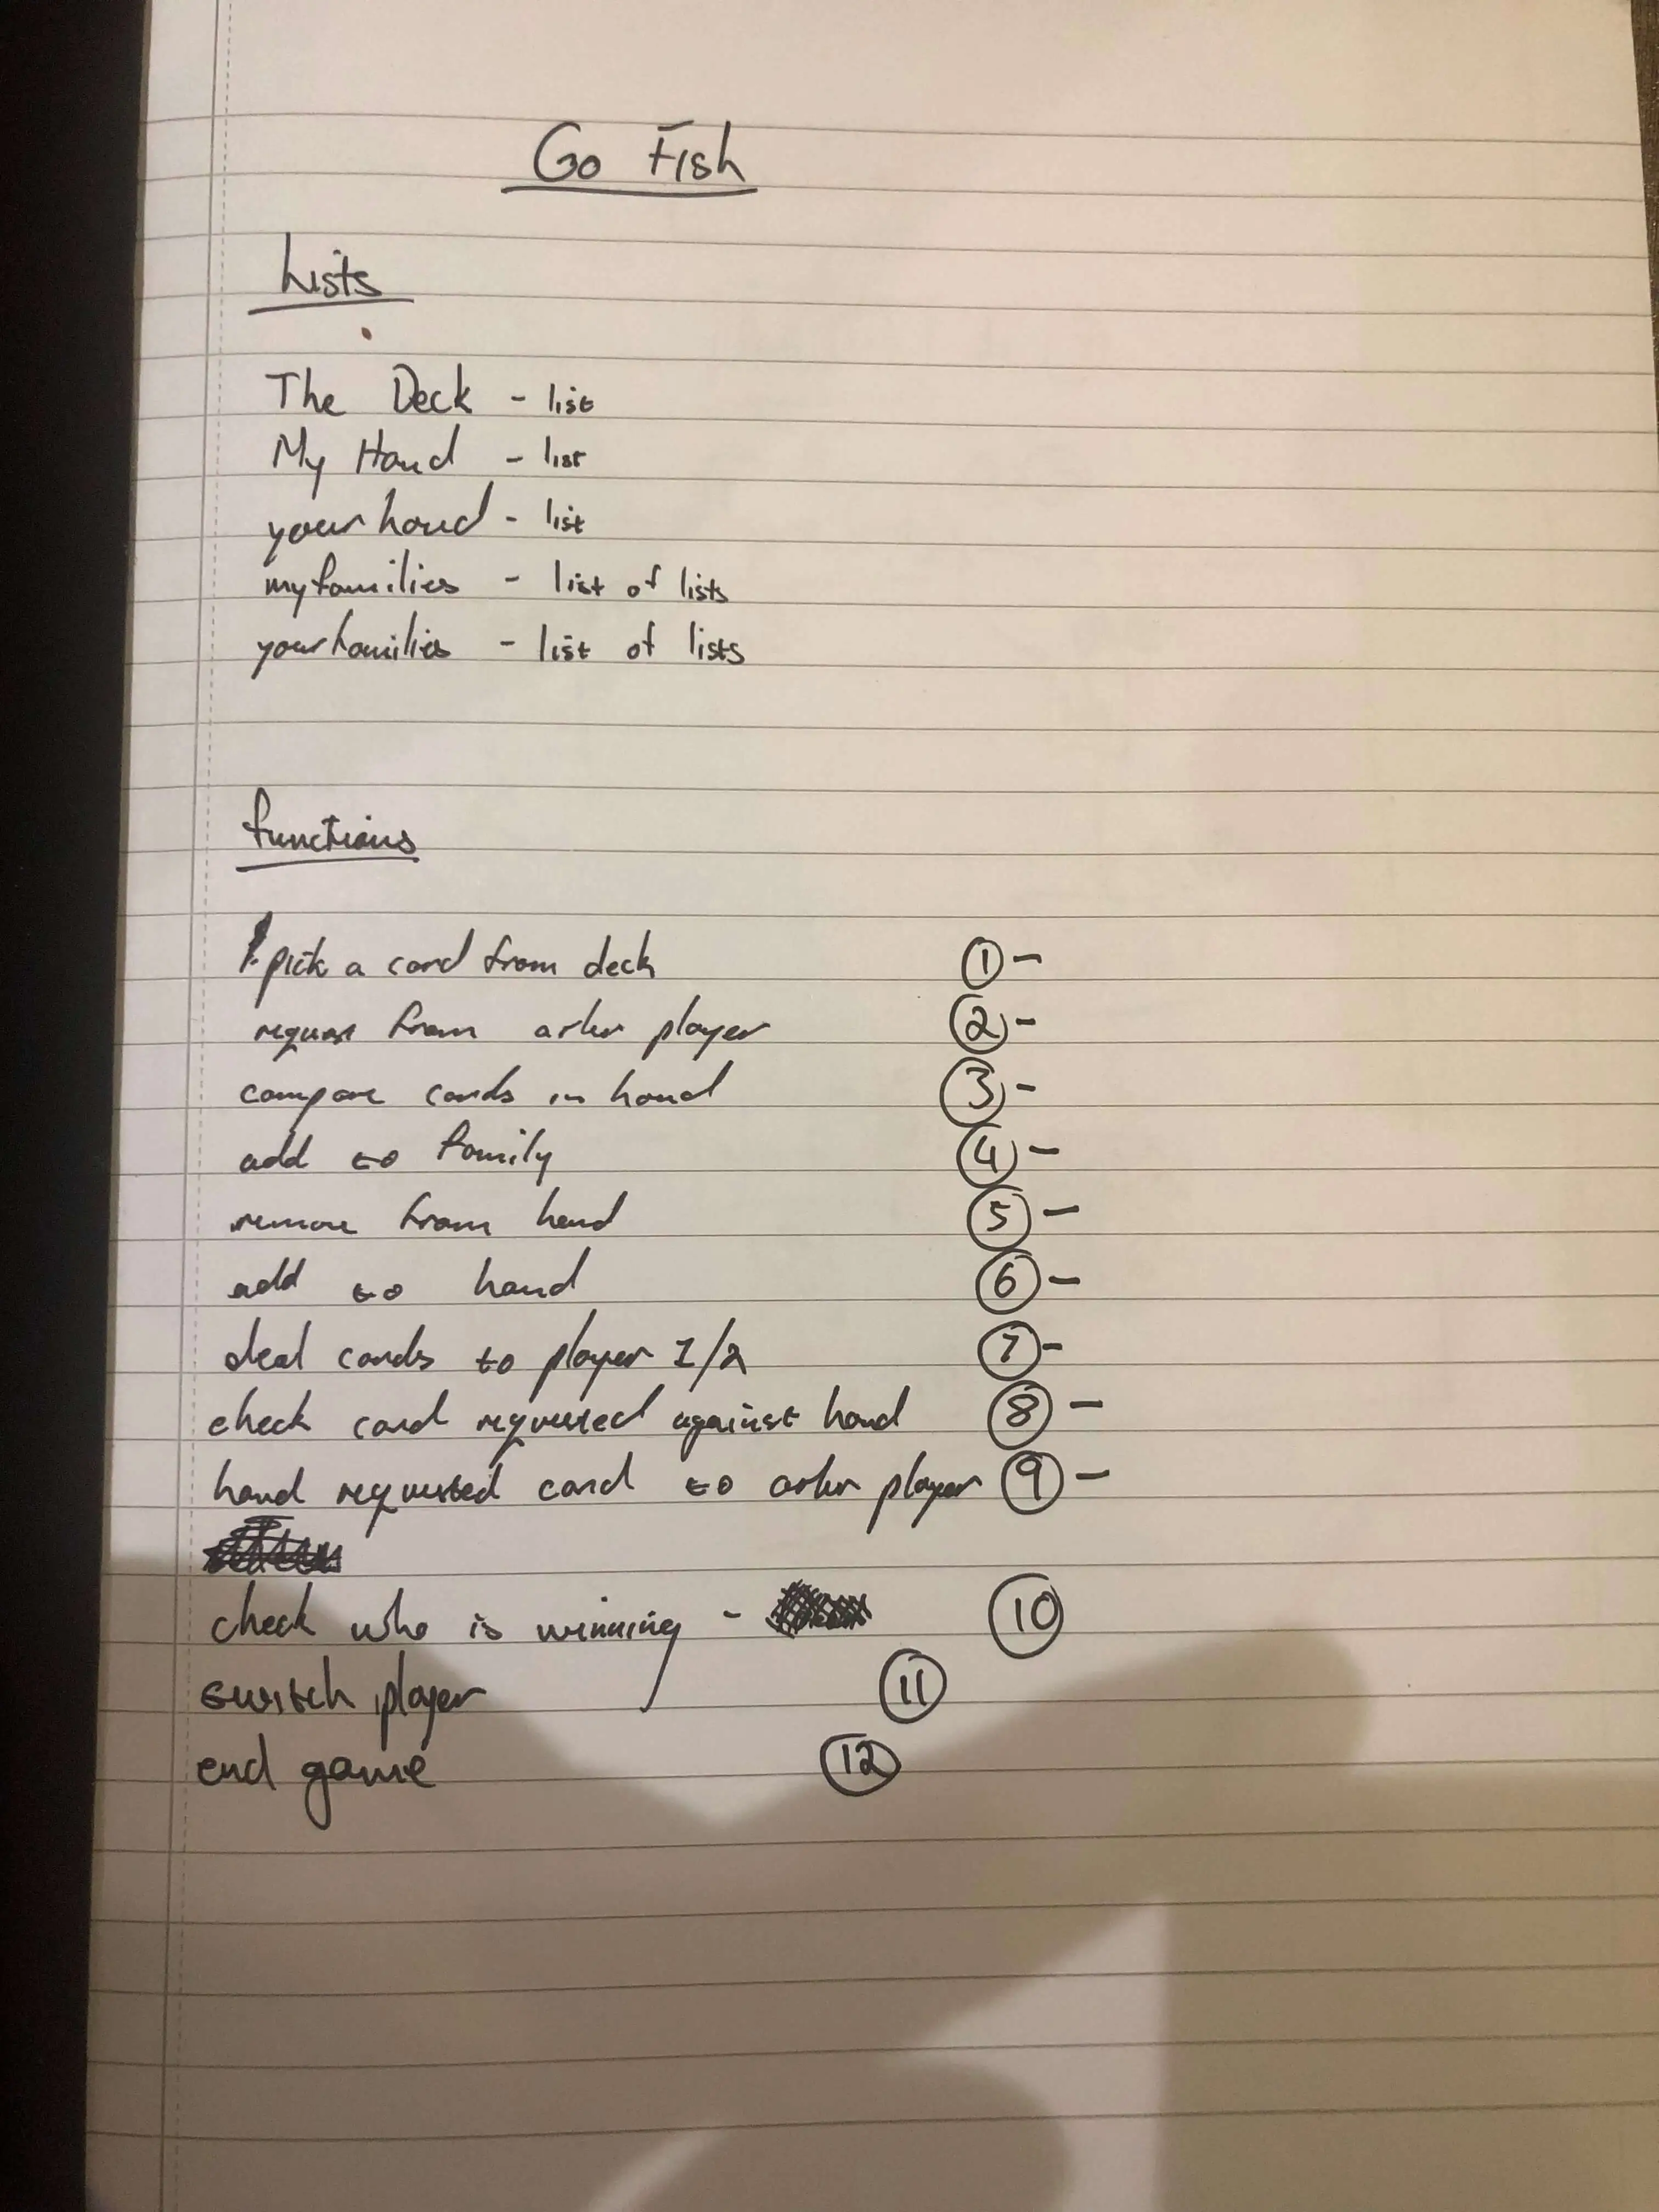 Go Fish
Lists
The Deck - list
My Hand - list
your hand - list
my families - list of lists
your families - list of lists
functions
pick a card from deck ① -
request from other player ② -
compare cards in hand ③ -
add to family ④ -
remove from hand ⑤ -
add to hand ⑥ -
deal cards to player 1/2 ⑦ -
check card requested against hand ⑧ -
hand requested card to other player ⑨ -
check who is winning - ⑩
switch player ⑪
end game ⑫